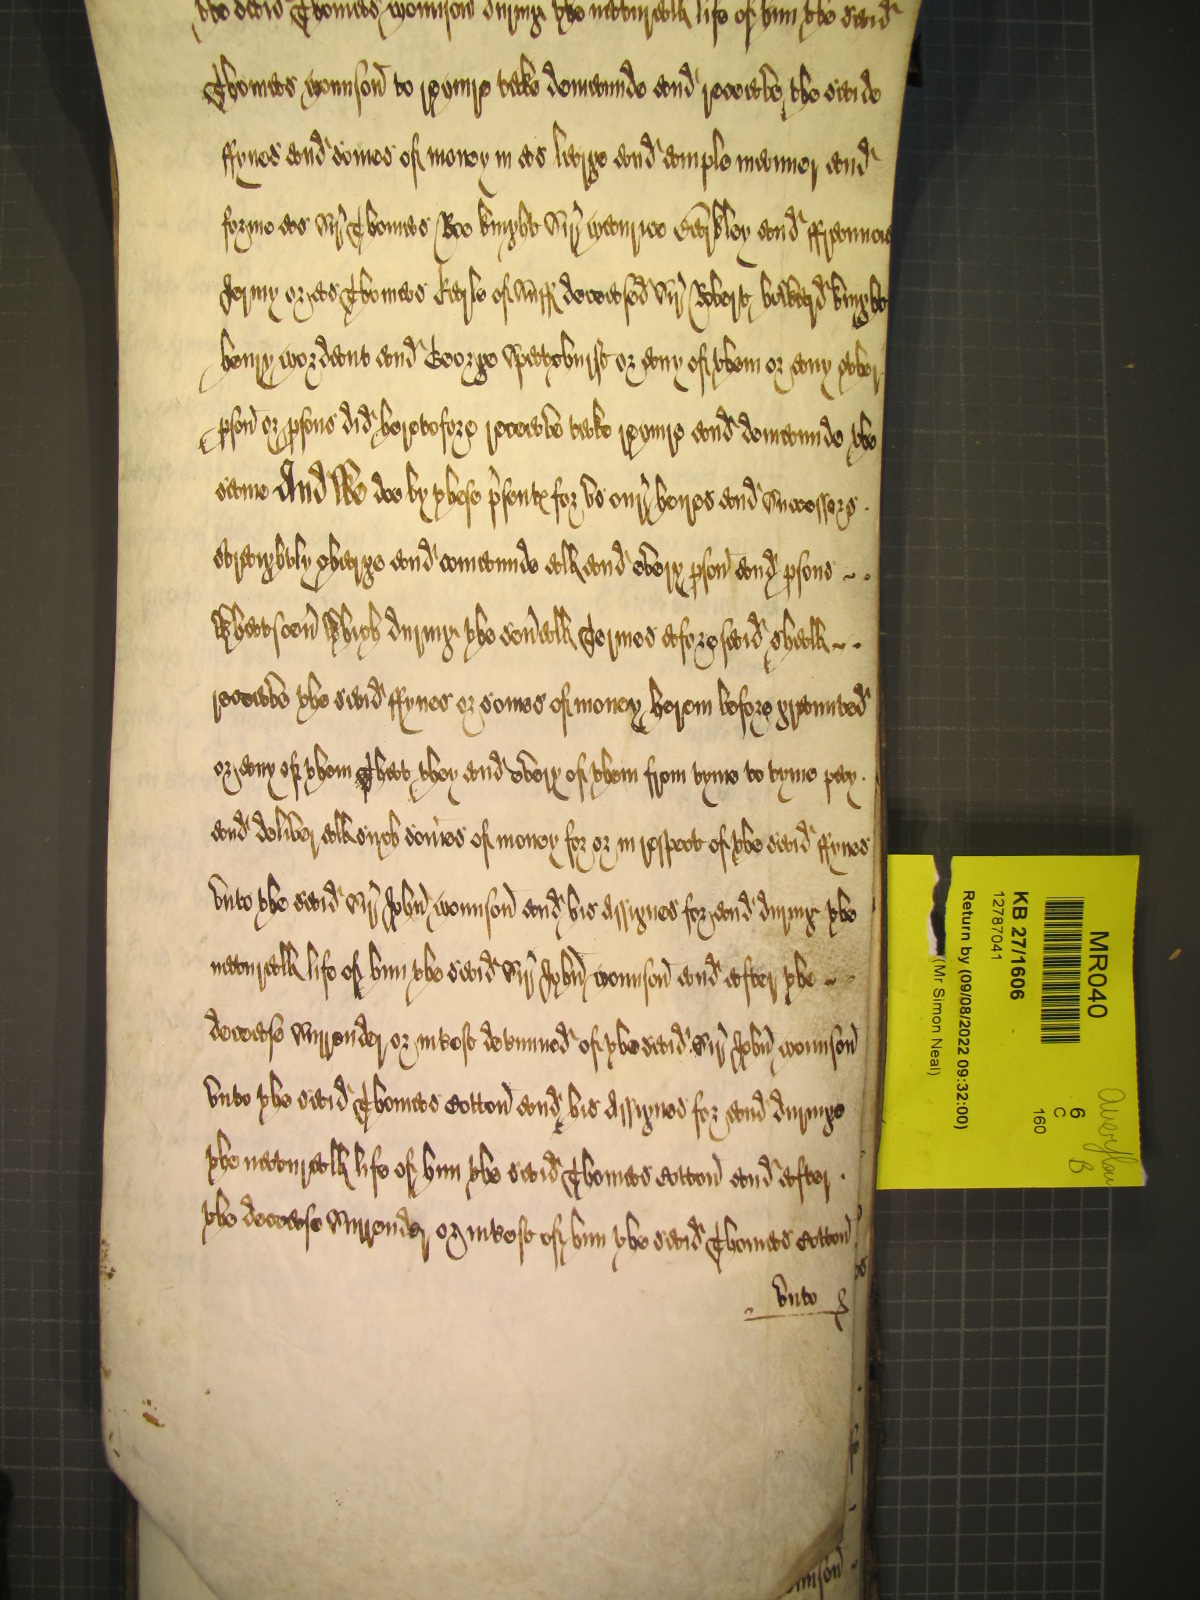 the said Thomas Mounson during the naturall life of him the said
Thomas Mounson to require take demaunde and receave the saide
ffynes and somes of money in as large and ample manner and
forme as Sir Thomas Roe knight Sir Maurice Barkley and ffraunces
Jermy or as Thomas Earle of Suff deceased Sir Robert knight
henry and George or any of them or any other
pson or psons did heretofore receave take require and demaunde the
same And We doe by these psents for us our heires and Successors
straightly charge and comaunde all and every pson and psons
Whatsoever Which during the severall Termes aforesaid shall
receave the said ffynes or somes of money herein before graunted
or any of them That they and every of them from tyme to tyme pay
and deliver all such somes of money for or in respect of the said ffynes
unto the said Sir John Mounson and his Assignes for and during the
naturall life of him the said Sir John Mounson and after the
decease Surrender or intrest detmined of the said Sir John Mounson
unto the said Thomas Cotton and his Assignes for and duringe
the naturall life of him the said Thomas Cotton and after
the decease Surrender or intrest of him the said Thomas Cotton
unto
MR040
KB 27/1606
12787041
Return by (09/08/2022 09:32:00)
(Mr Simon Neal)
6
C
160
B